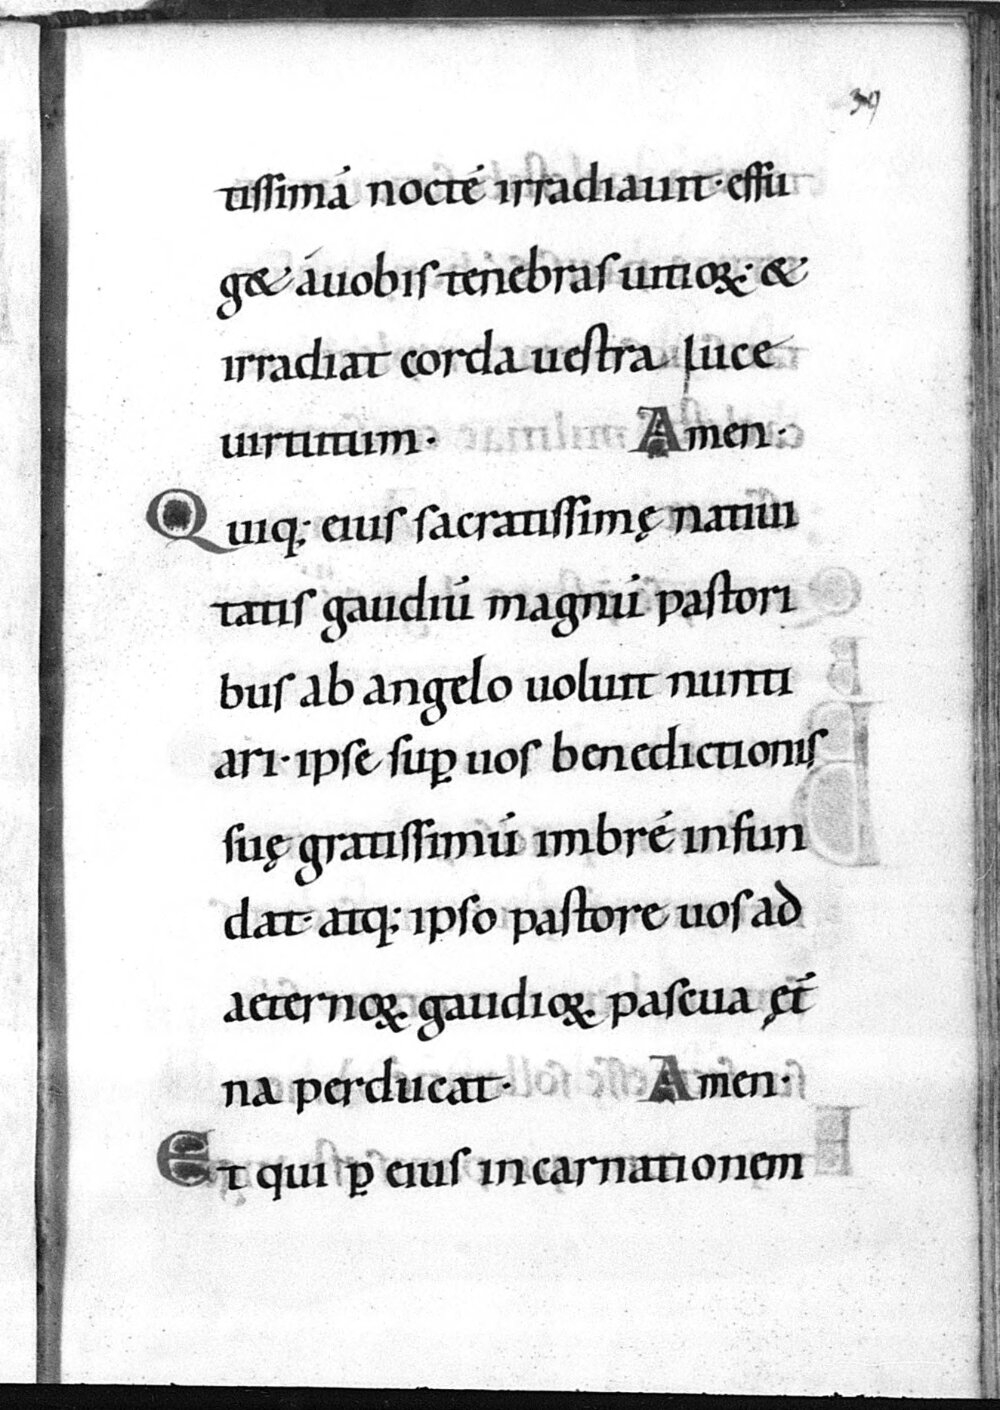 39
tissimá nocté irradiauit· effu
g& áuobis tenebras uitioꝝ· &
irradiat corda uestra luce
uirtutum· Amen·
Quiq; eius sacratissimę natiui
tatis gaudiú magnú pastori
bus ab angelo uoluit nunti
ari· ipse suꝑ uos benedictionis
suę gratissimú imbré infun
dat· atq; ipso pastore uos ad
aeternoꝝ gaudioꝝ pascua ęt̄
na perducat· Amen·
Et qui ꝑ eius incarnationem